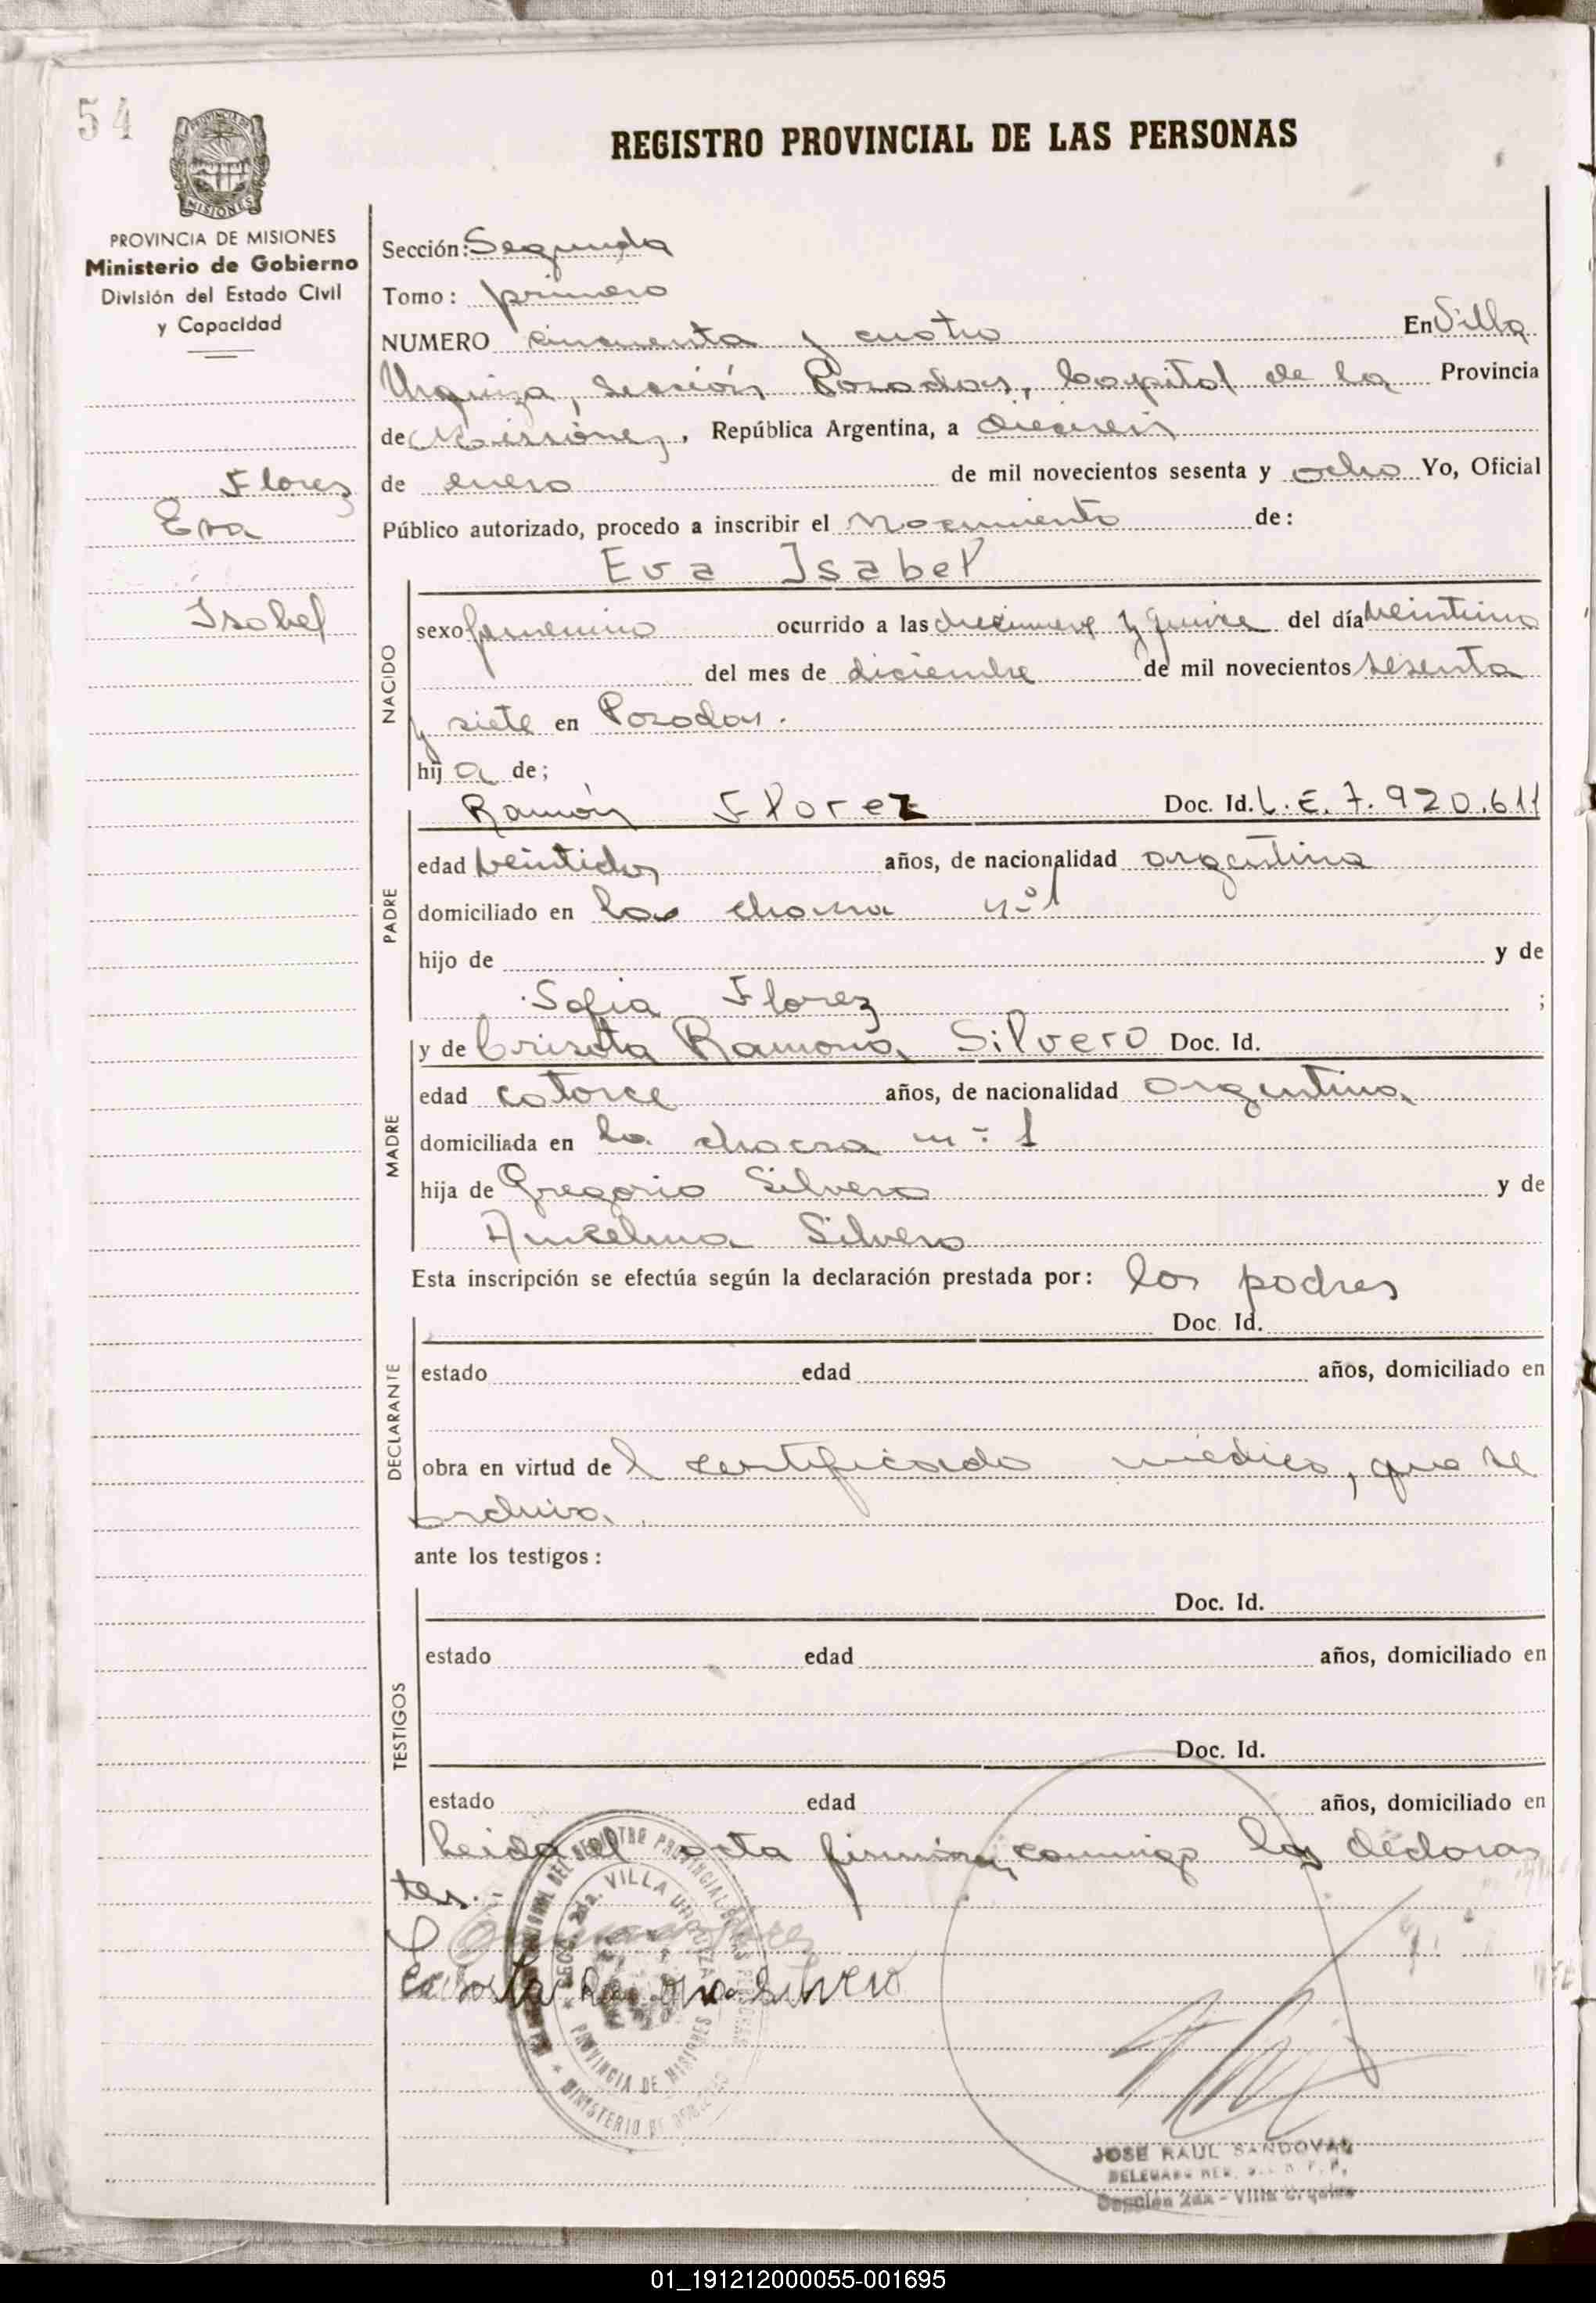 54
PROVINCIA DE
MISIONES
PROVINCIA DE MISIONES
Ministerio de Gobierno
División del Estado Civil
y Capacidad
Florez
Eva
Isabel
REGISTRO PROVINCIAL DE LAS PERSONAS
Sección: Segunda
Tomo: primero
NUMERO cincuenta y cuatro En Villa
Urquiza, sección Posadas, Capital de la Provincia
de Misiones, República Argentina, a dieciseis
de enero de mil novecientos sesenta y ocho Yo, Oficial
Público autorizado, procedo a inscribir el Nacimiento de:
Eva Isabel
NACIDO
sexo femenino ocurrido a las diecinueve y quince del día veintiuno
del mes de diciembre de mil novecientos sesenta
y siete en Posadas.
hij a de;
PADRE
Ramón Florez Doc. Id. L. E. 7.920.611
edad veintidos años, de nacionalidad argentina
domiciliado en la chacra nº 1
hijo de y de
Sofia Florez ;
MADRE
y de Crisota Ramona Silvero Doc. Id.
edad catorce años, de nacionalidad argentina
domiciliada en la chacra nº 1
hija de Gregorio Silvero y de
Anselma Silvero
Esta inscripción se efectúa según la declaración prestada por: los padres
DECLARANTE
Doc. Id.
estado edad años, domiciliado en
obra en virtud de l certificado medico, que se
archiva.
ante los testigos:
TESTIGOS
Doc. Id.
estado edad años, domiciliado en
Doc. Id.
estado edad años, domiciliado en
Leida el acta firman conmigo los declaran
tes.-
Ramona Silvero
DEL REGISTRO PROVINCIAL DE LAS PERSONAS
SECC. 2da. VILLA URQUIZA
PROVINCIA DE MISIONES
MINISTERIO DE GOBIERNO
JOSE RAUL SANDOVAL
Sección 2da - Villa Urquiza
01_191212000055-001695